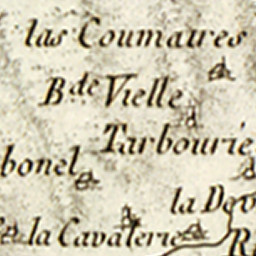 las Coumaires
B.de Vielle
Tarbourie
bonel
la Dev
la Cavalerie
R